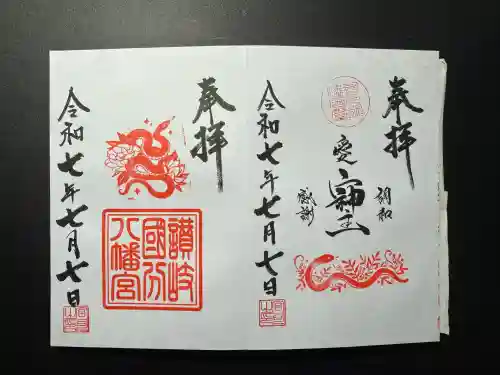 奉拝
調和
愛
神
感謝
令和七年七月七日
奉拝
讃岐
國分
八幡宮
令和七年七月七日